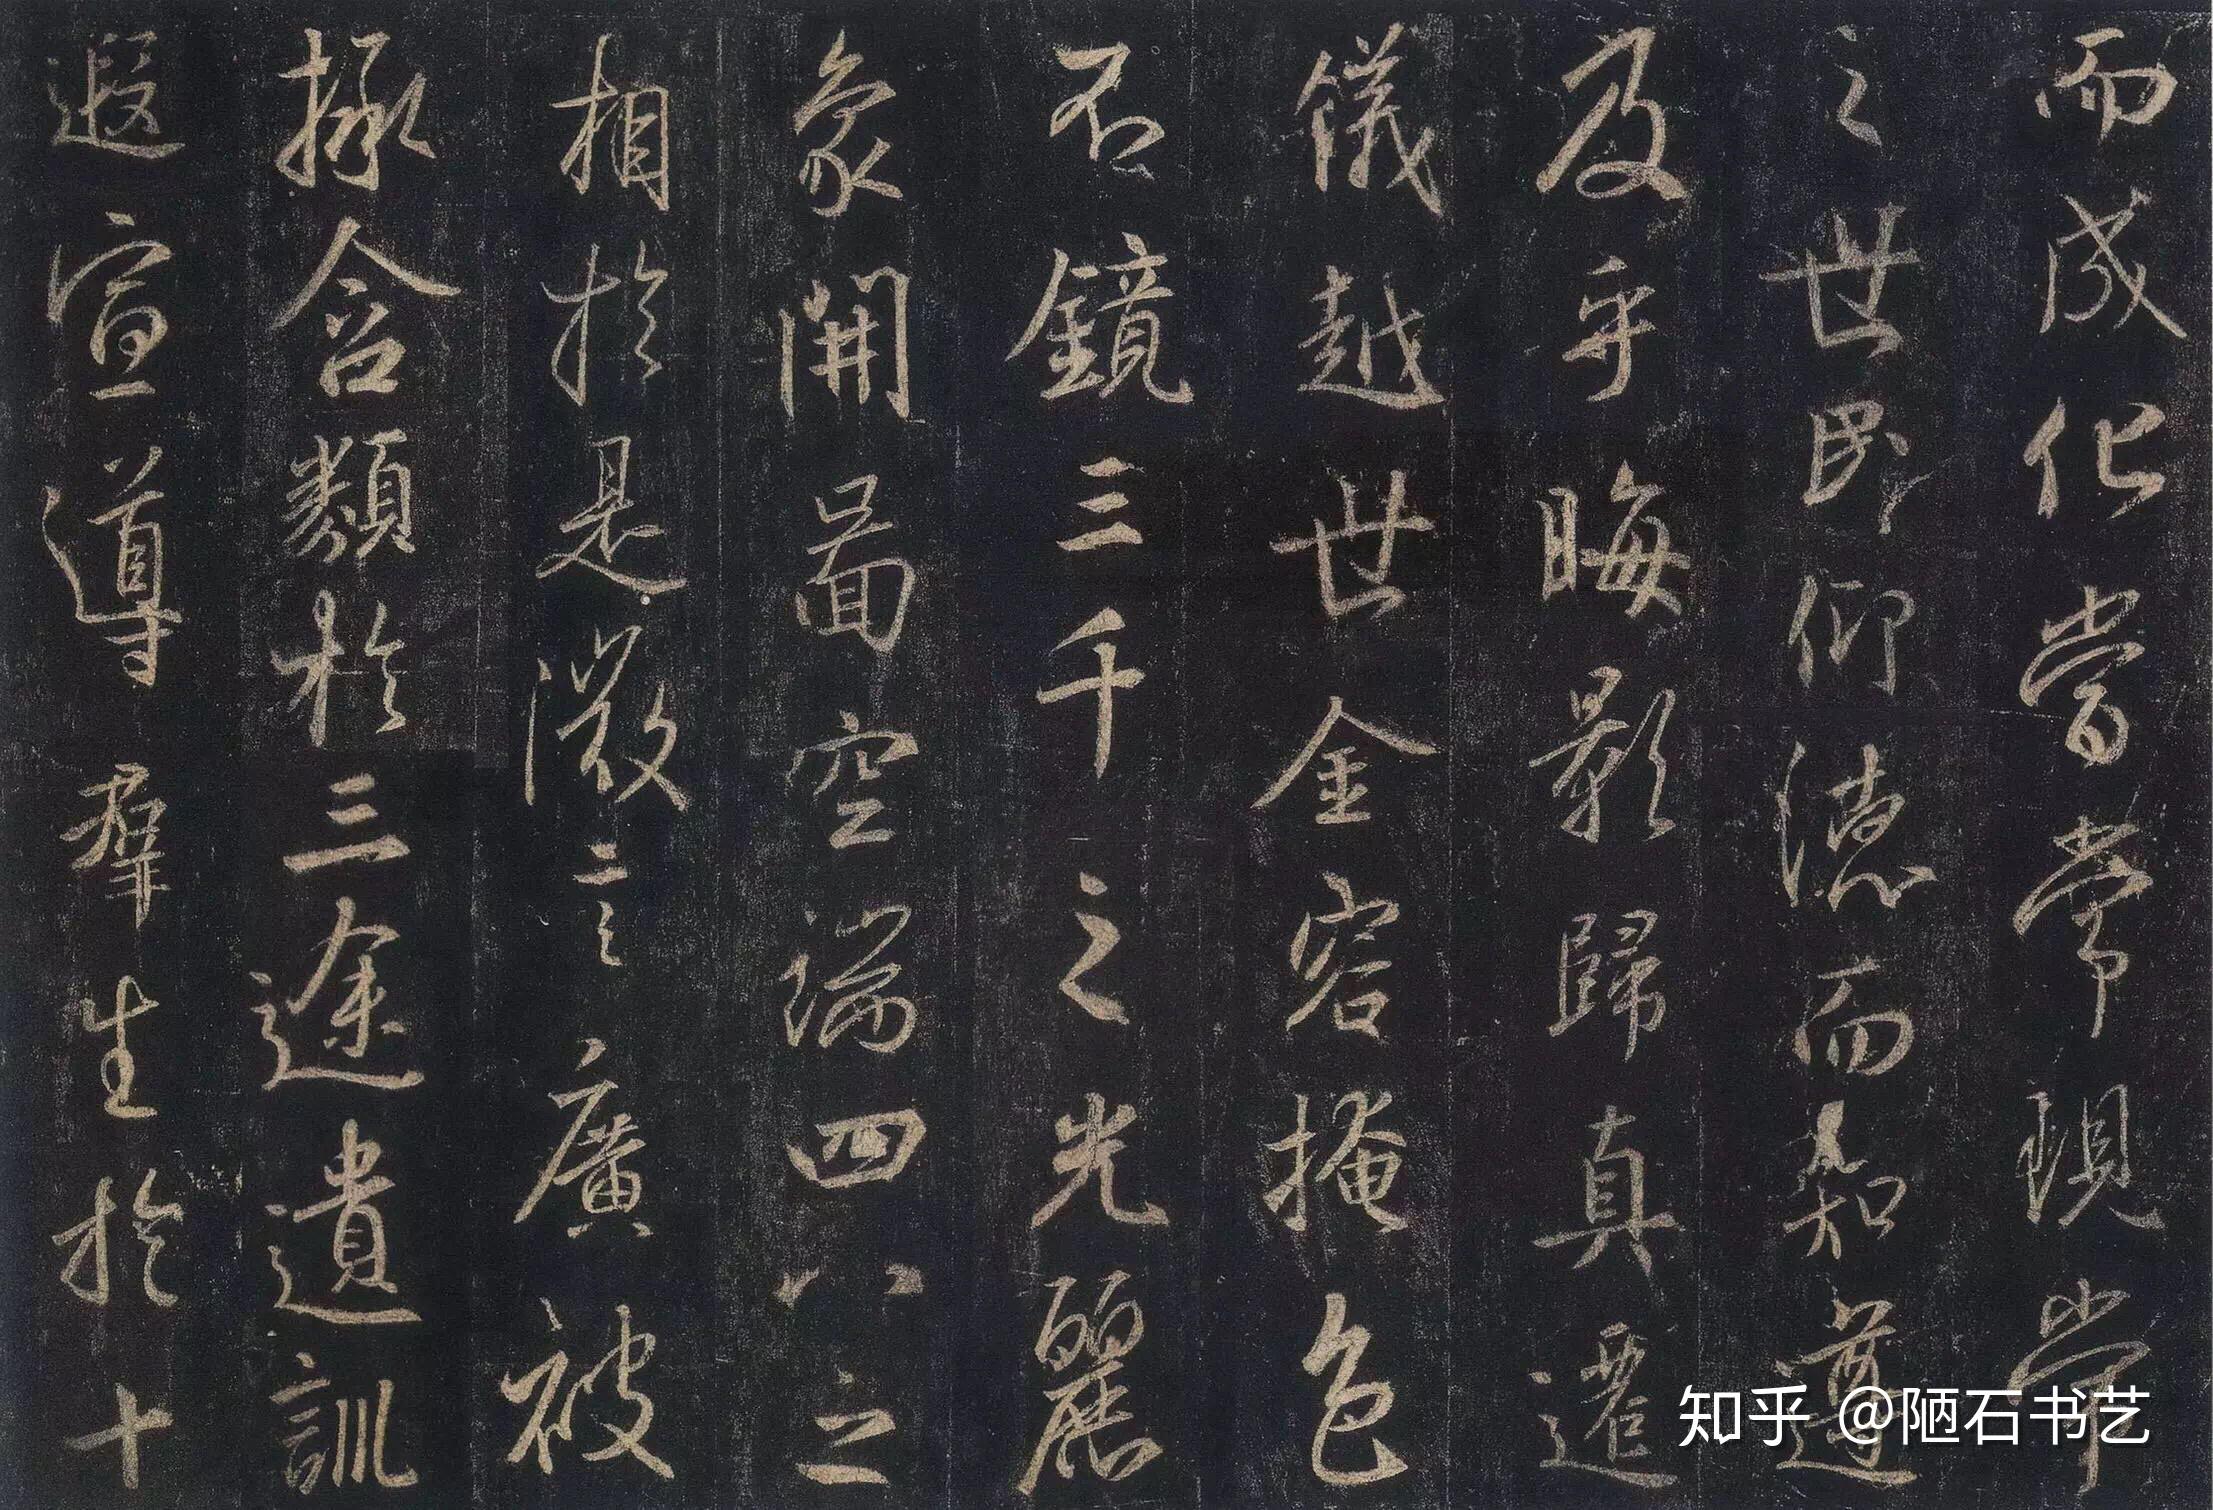 而成化當常現常
之世民仰德而知遵
及乎晦影歸真遷
儀越世金容掩色
不鏡三千之光麗
象開圖空端四八之
相於是微言廣被
拯含類於三途遺訓
遐宣導羣生於十
知乎 @陋石书艺